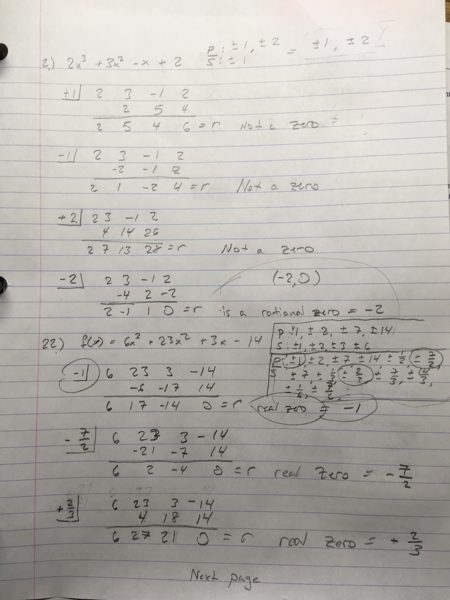 2.) 2x³ + 3x² - x + 2   P: ±1, ±2 = ±1, ±2
S: ±1
+1| 2 3 -1 2
2 5 4
2 5 4 6 = r Not a zero
-1| 2 3 -1 2
-2 -1 2
2 1 -2 4 = r Not a zero
+2| 2 3 -1 2
4 14 26
2 7 13 28 = r Not a zero
-2| 2 3 -1 2 (-2,0)
-4 2 -2
2 -1 1 0 = r is a rational zero = -2
22.) f(x) = 6x³ + 23x² + 3x - 14
P: ±1, ±2, ±7, ±14
S: ±1, ±2, ±3 ±6
-1| 6 23 3 -14
-6 -17 14
6 17 -14 0 = r real zero = -1
-7/2| 6 23 3 -14
-21 -7 14
6 2 -4 0 = r real zero = -7/2
+2/3| 6 23 3 -14
4 18 14
6 27 21 0 = r real zero = +2/3
Next page